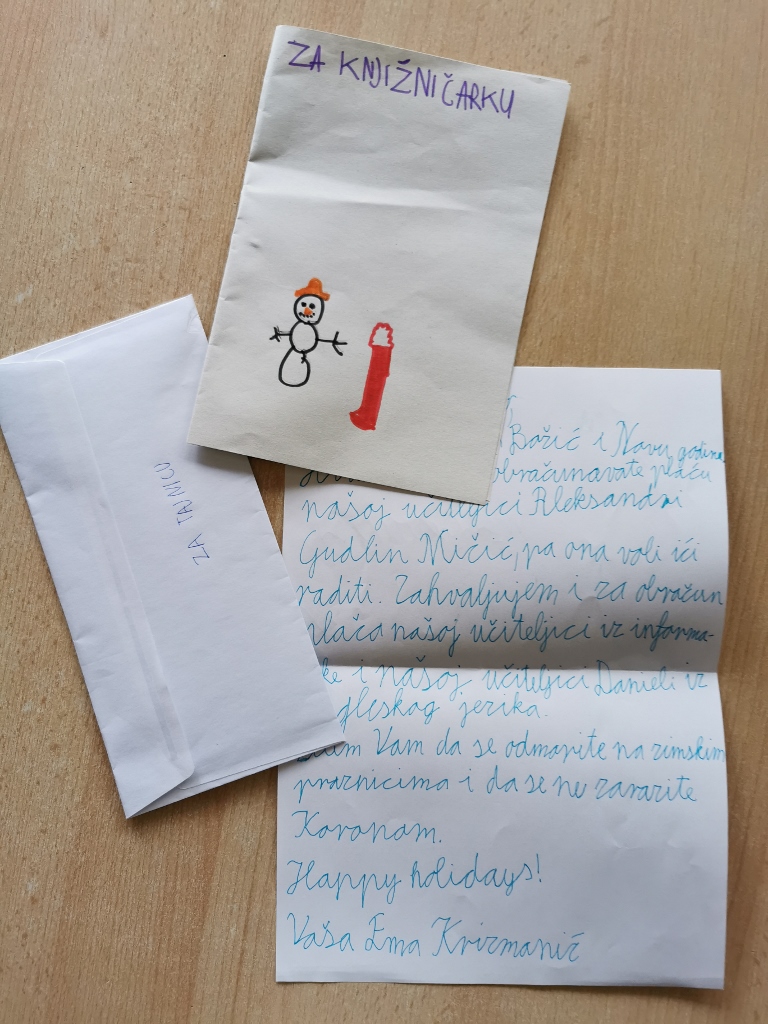 ZA KNJIŽNIČARKU
ZA TAJNICU
Božić i Novu godinu
obračunavate plaću
našoj učiteljici Aleksandri
Gudlin Mičić, pa ona voli ići
raditi. Zahvaljujem i za obračun
plaća našoj učiteljici iz informa-
ke i našoj učiteljici Danieli iz
gleskog jezika.
Vam da se odmorite na zimskim
praznicima i da se ne zarazite
Koronom.
Happy holidays!
Vaša Ema Krizmanić